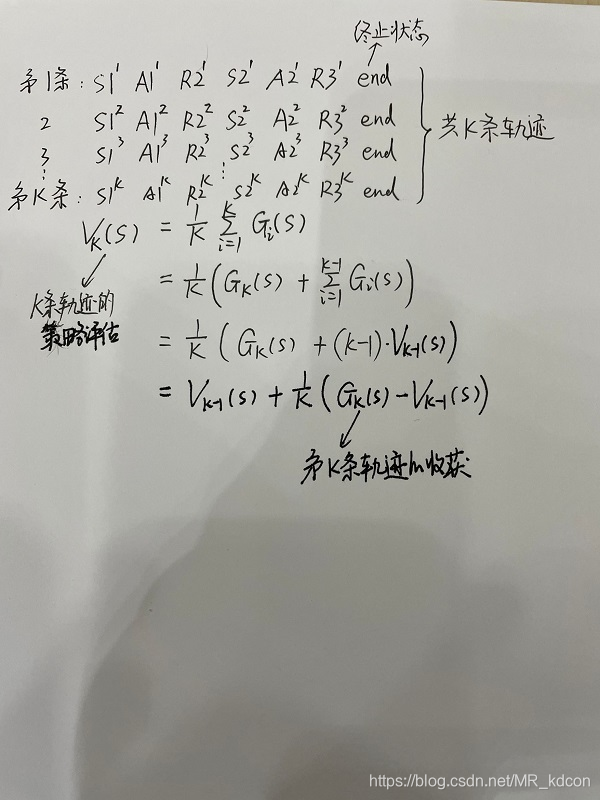 终止状态
第1条: S1¹ A1¹ R2¹ S2¹ A2¹ R3¹ end
2 S1² A1² R2² S2² A2² R3² end
3 S1³ A1³ R2³ S2³ A2³ R3³ end
⋮ ⋮
第K条: S1ᴷ A1ᴷ R2ᴷ S2ᴷ A2ᴷ R3ᴷ end
共K条轨迹
V_K(S) = 1/K ∑_{i=1}^{K} G_i(S)
= 1/K (G_K(S) + ∑_{i=1}^{K-1} G_i(S))
K条轨迹的
策略评估
= 1/K (G_K(S) + (K-1)·V_{K-1}(S))
= V_{K-1}(S) + 1/K (G_K(S) - V_{K-1}(S))
第K条轨迹的收获
https://blog.csdn.net/MR_kdcon